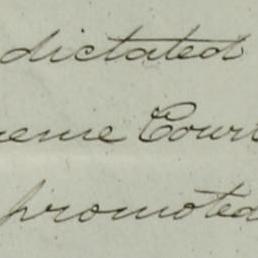 dictated
reme Court
promoted